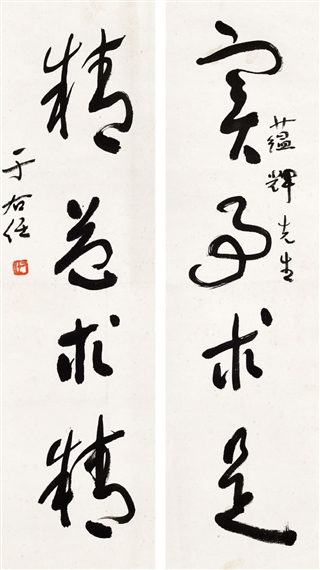 蘊輝先生
實事求是
精益求精
于右任